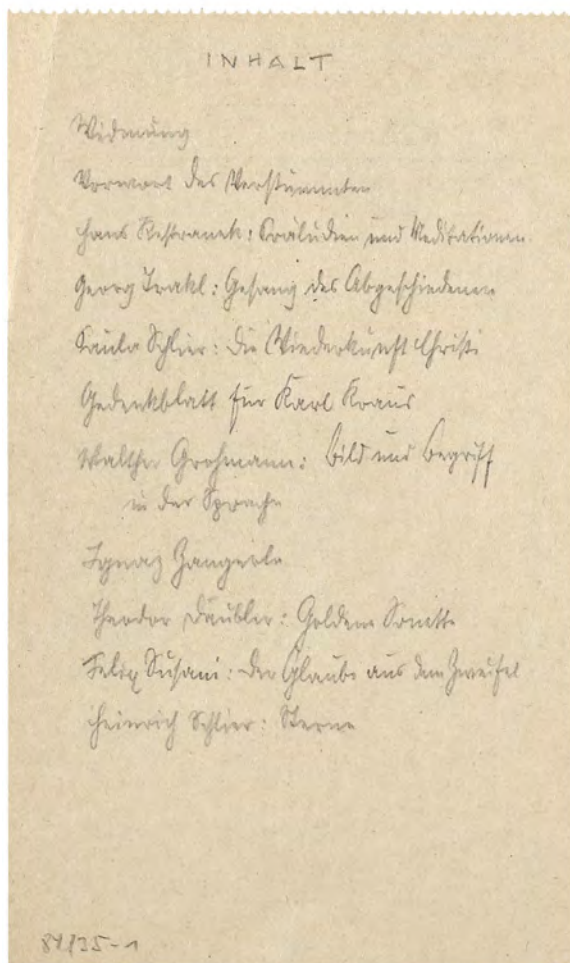 INHALT
Widmung
Vorwort des Verstummten
Hans Kestranek: Präludien und Meditationen.
Georg Trakl: Gesang des Abgeschiedenen
Paula Schlier: Die Wiederkunft Christi
Gedenkblatt für Karl Kraus
Walther Grohmann: Bild und Begriff
in der Sprache
Ignaz Zangerle
Theodor Däubler: Goldene Sonette
Felix Susani: Der Glaube aus dem Zweifel
Heinrich Schlier: Sterne
84/35-1